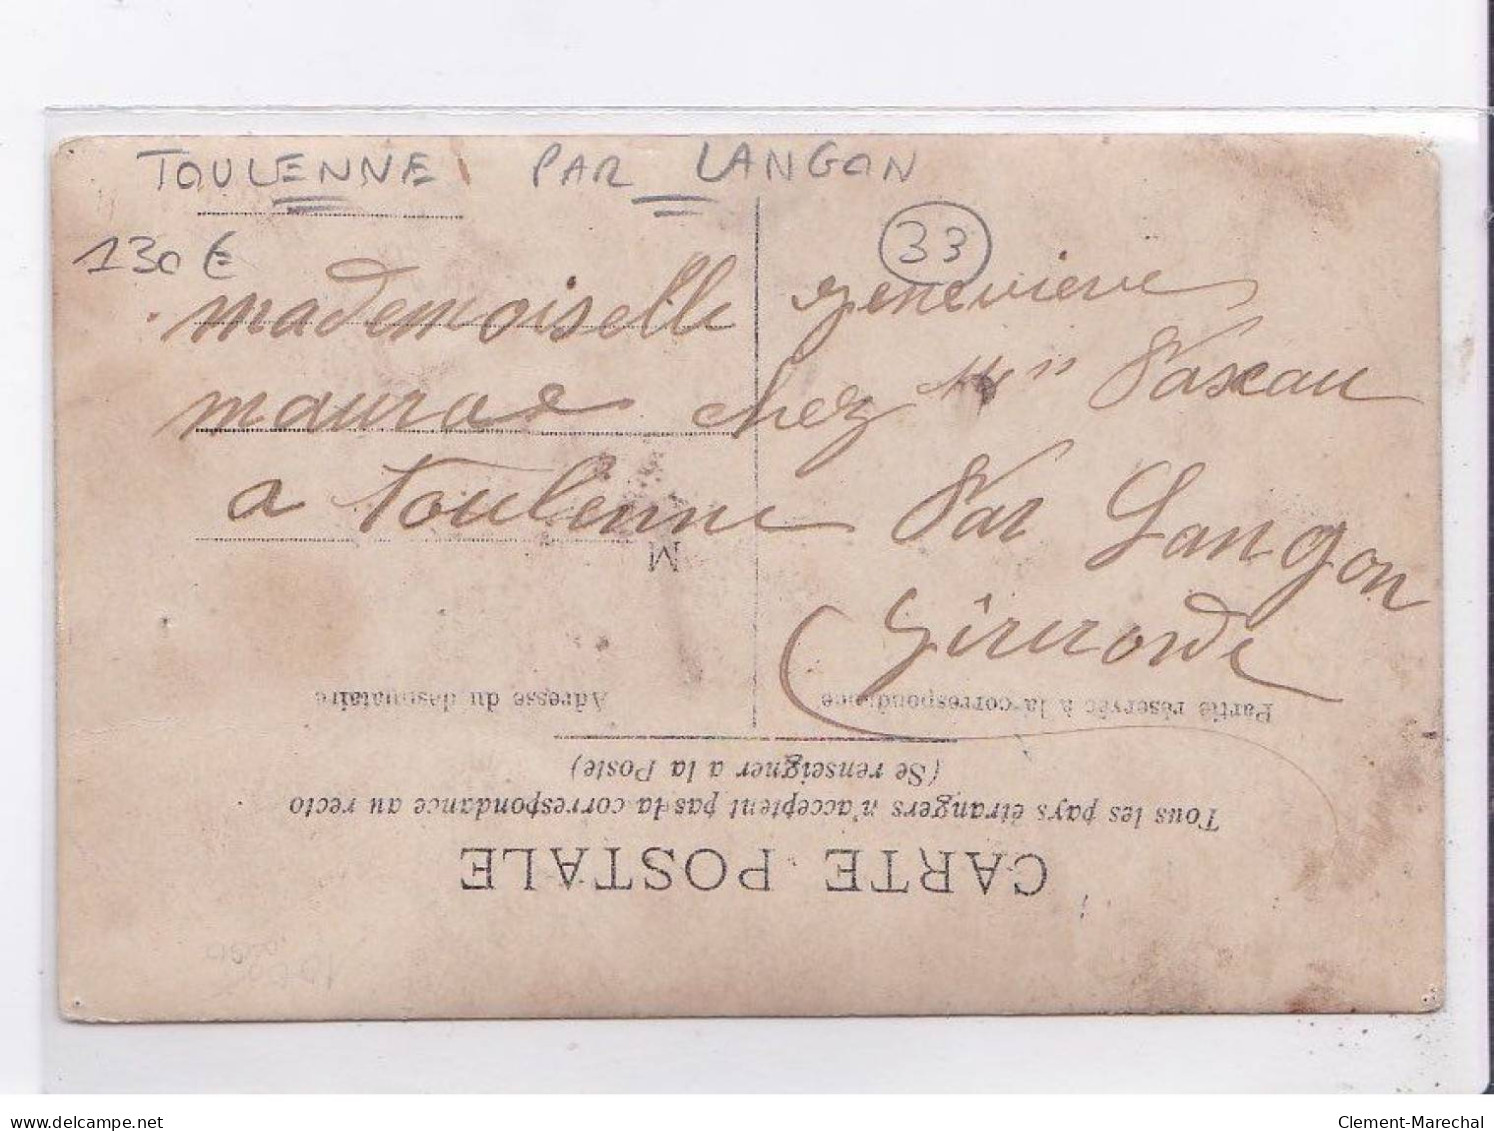 TOULENNE PAR LANGON
130€
33
mademoiselle genevieve
mauras chez Mr
a Toulenne Par Langon
Girronde
M
Adresse du destinataire
Partie réservée à la correspondance
(Se renseigner a la Poste)
Tous les pays étrangers n'acceptent pas la correspondance au recto
CARTE POSTALE
delcampe.net
Clement-Marechal